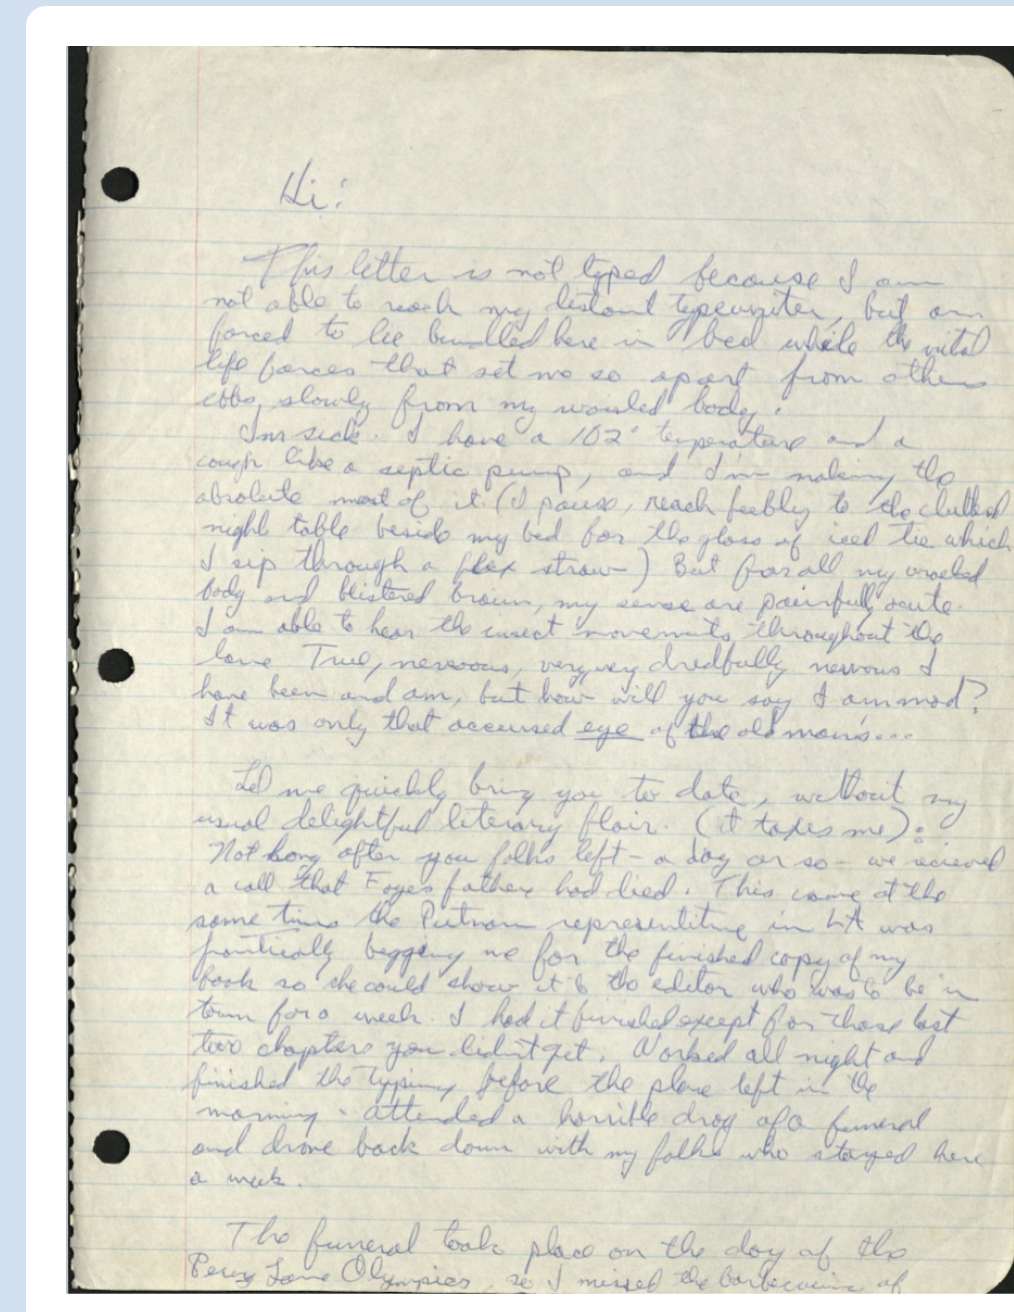 Hi!
This letter is not typed because I am
not able to reach my distant typewriter, but am
forced to lie bundled here in bed while the vital
life forces that set me so apart from others
ebbs slowly from my wasted body.
I'm sick. I have a 102° temperature and a
cough like a septic pump, and I'm making the
absolute most of it. (I pause, reach feebly to the cluttered
night table beside my bed for the glass of iced tea which
I sip through a flex straw-) But for all my wracked
body and blistered brain, my sense are painfully acute.
I am able to hear the insect movements throughout the
lane True, nervous, very, very dredfully nervous I
have been and am, but how will you say I am mad?
It was only that accursed eye of the old man's...
Let me quickly bring you to date, without my
usual delightful literary flair. (it taxes me):
Not long after you folks left - a day or so - we recieved
a call that Faye's father had died. This came at the
same time the Putnam representitive in LA was
frantically begging me for the finished copy of my
book so she could show it to the editor who was to be in
town for a week. I had it finished except for those last
two chapters you didn't get. Worked all night and
finished the typing before the plane left in the
morning - attended a horrible drag of a funeral
and drove back down with my folks who stayed here
a week.
The funeral took place on the day of the
Perry Lane Olympics, so I missed the barbecuing of